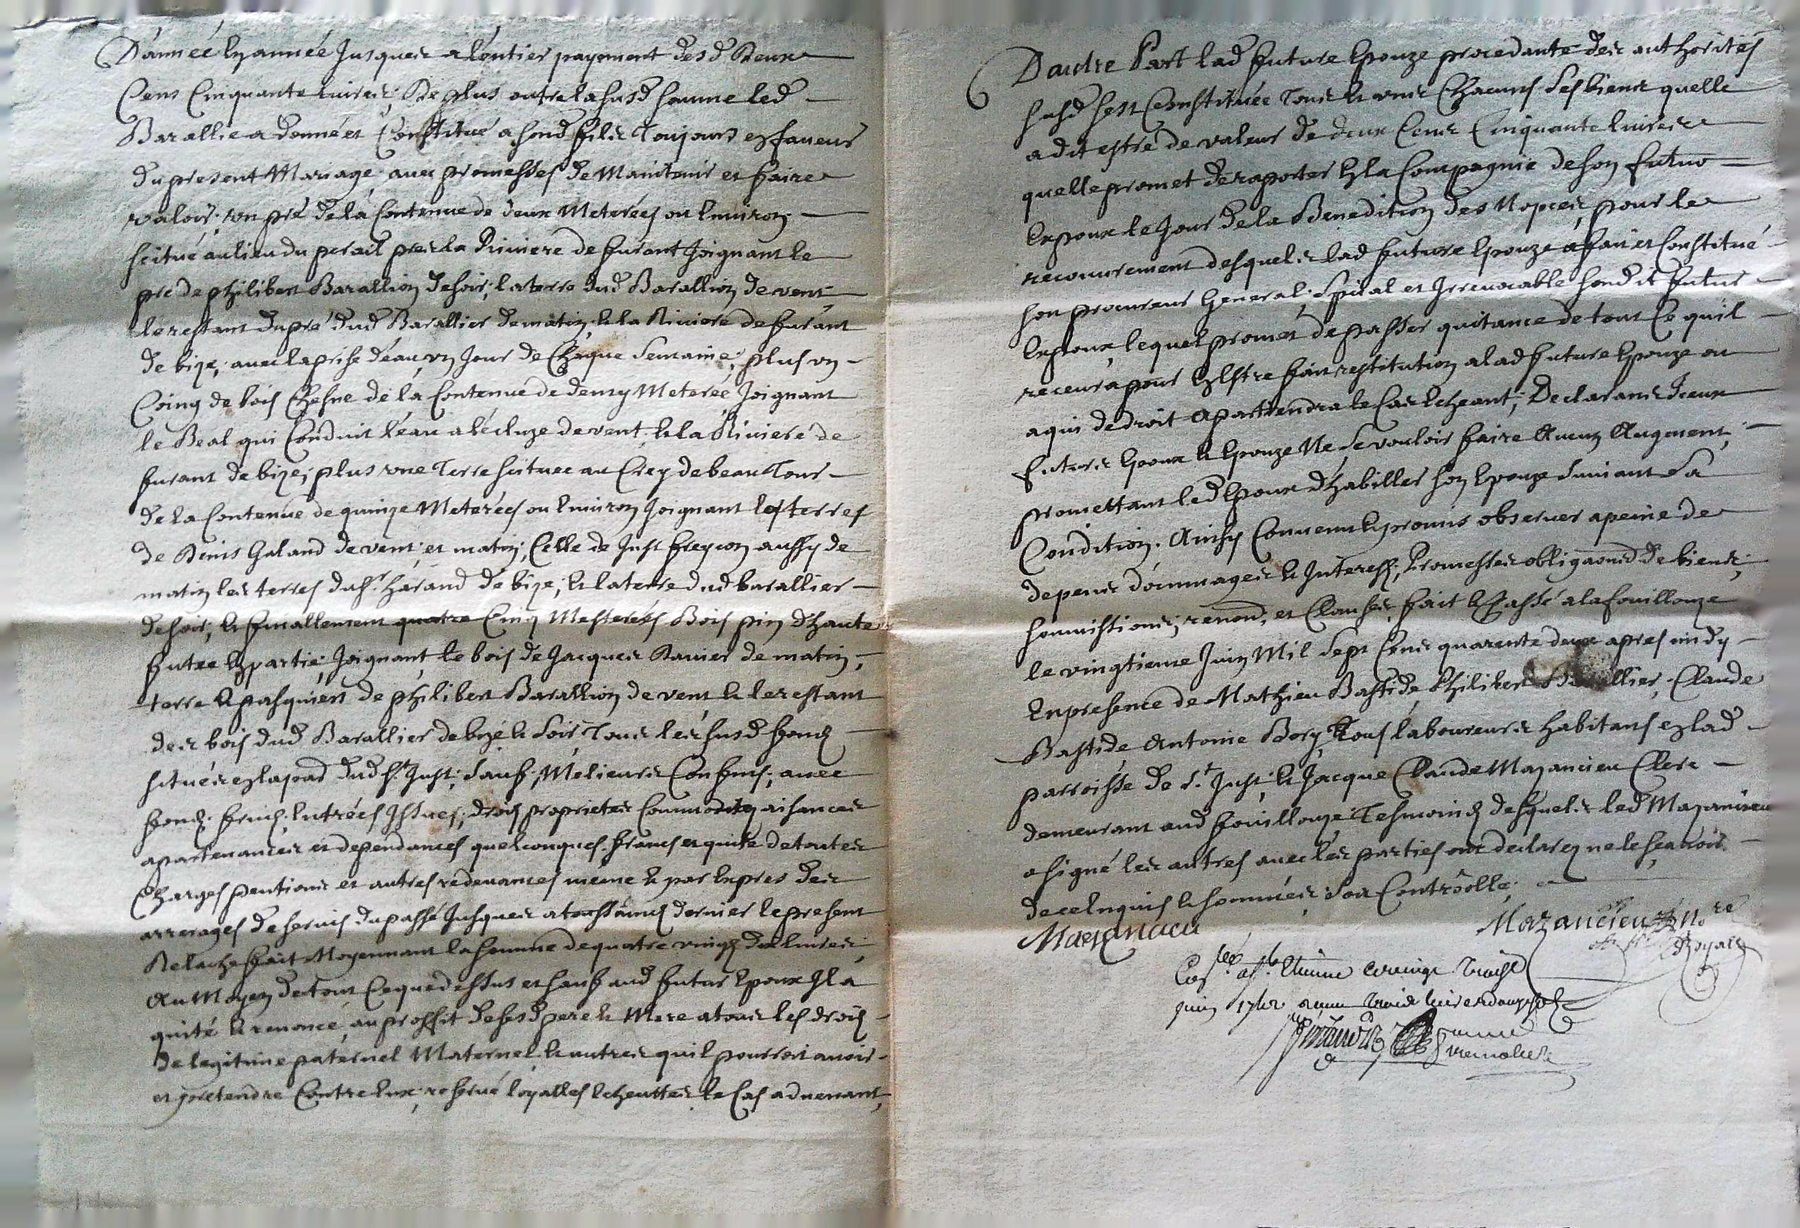 D'année en année Jusques a lentier payement des d deux
Cens Cinquante Livres; De plus outre la susd somme led
Barallie a donné et Constitué a sond fils Toujours en faveur
du present Mariage avec promesses de Maintenir et faire
valoir; un pré de la Contenue de deux Meterées ou Environ
scitué au lieu du perail pres la Riviere de furant Joignant le
pré de philibert Barallion de soir; la terre dud Barallion de vent
le restant du pré dud Barallier de matin, & la Riviere de furant
de bize; avec la prise d'eau un Jour de Chaque Semaine; plus un
Coing de bois Chesne de la Contenue de demy Meterée Joignant
le Beal qui Conduit l'eau a l'ecluze de vent, & la Riviere de
furant de bize; plus une Terre scituee au Crey de beau Tour
de la Contenue de quinze Meterées ou Environ Joignant les terres
de Denis Galand de vent; et matin; Celle de Just freycon aussy de
matin les terres du sr. harand de bize; & la terre dud barallier
de soir; & finallement quatre Cinq Mesterées Bois pin d'haute
futee en partie; Joignant le bois de Jacques Ravier de matin;
terre & pasquiers de philibert Barallion de vent & le restant
des bois dud Barallier de bize & soir, Tous les susd fonds
situés en la parr dud st. Just; sauf; Melieurs Confins; avec
fonds fruits, Entrées Issues; droits proprietes Commodites aisances
apartenances et dependances quelconques francs et quite de toutes
Charges pentions et autres redevances meme & par Expres des
arrerages de servis du passé Jusques a toussaints dernier le present
Relache fait Moyennant la somme de quatre vingts dix livres
Au Moyen de tout Ce que dessus et sauf aud futur Epoux Il a
quité & renoncé au proffit de sesd pere & Mere a tous les droits
de legitime paternel Maternel & autres quil pourroit avoir
et pretendre Contre Eux; reservé loyalles Echeuttes le Cas advenant,
D'autre Part lad future Epouze procedante des authorités
susd sest Constituée Tous & uns Chacuns ses biens quelle
a dit estre de valeur de deux Cens Cinquante livres
quelle promet de raporter En la Compagnie de son futur
Expoux le Jour de la Benedition des Nopces, pour le
recouvrement desquels lad future Epouze a fait et Constitué
son procureur General, Spécial et Irrevocable sondit futur
Expoux, lequel promet de passer quitance de tout Ce quil
recevra pour En Estre fait restitution a lad future Epouze ou
a qui de droit apartiendra le Cas Echeant; Declarans Iceux
futurs Epoux & Epouze Ne se vouloir faire Aucun Augment;
promettant led Epoux d'habiller son Epouze suivant Sa
Condition. Ainsy Convenu & promis observer a peine de
depens dommages & Interess; Promesses obligaons de biens;
soumissions; renond, et Clauses, fait & Passé a la fouillouze
le vingtieme Juin Mil Sept Cens quarente deux apres midy
En presence de Mathieu Bastide, Philibert Barallier, Claude
Bastide Antoine Bory, Tous laboureurs habitans en lad
parroisse de st. Just; & Jacque Claude Mazancieu Clerc
demeurant aud fouillouze Tesmoins desquels led Mazancieu
a signé les autres avec les parties ont declaré ne le sçavoir
de ce Enquis & sommées, soit Contrôollé;
Mazancieu
Mazancieu Nore
Royal
à st. Etienne ce vingt trois
Juin 1742